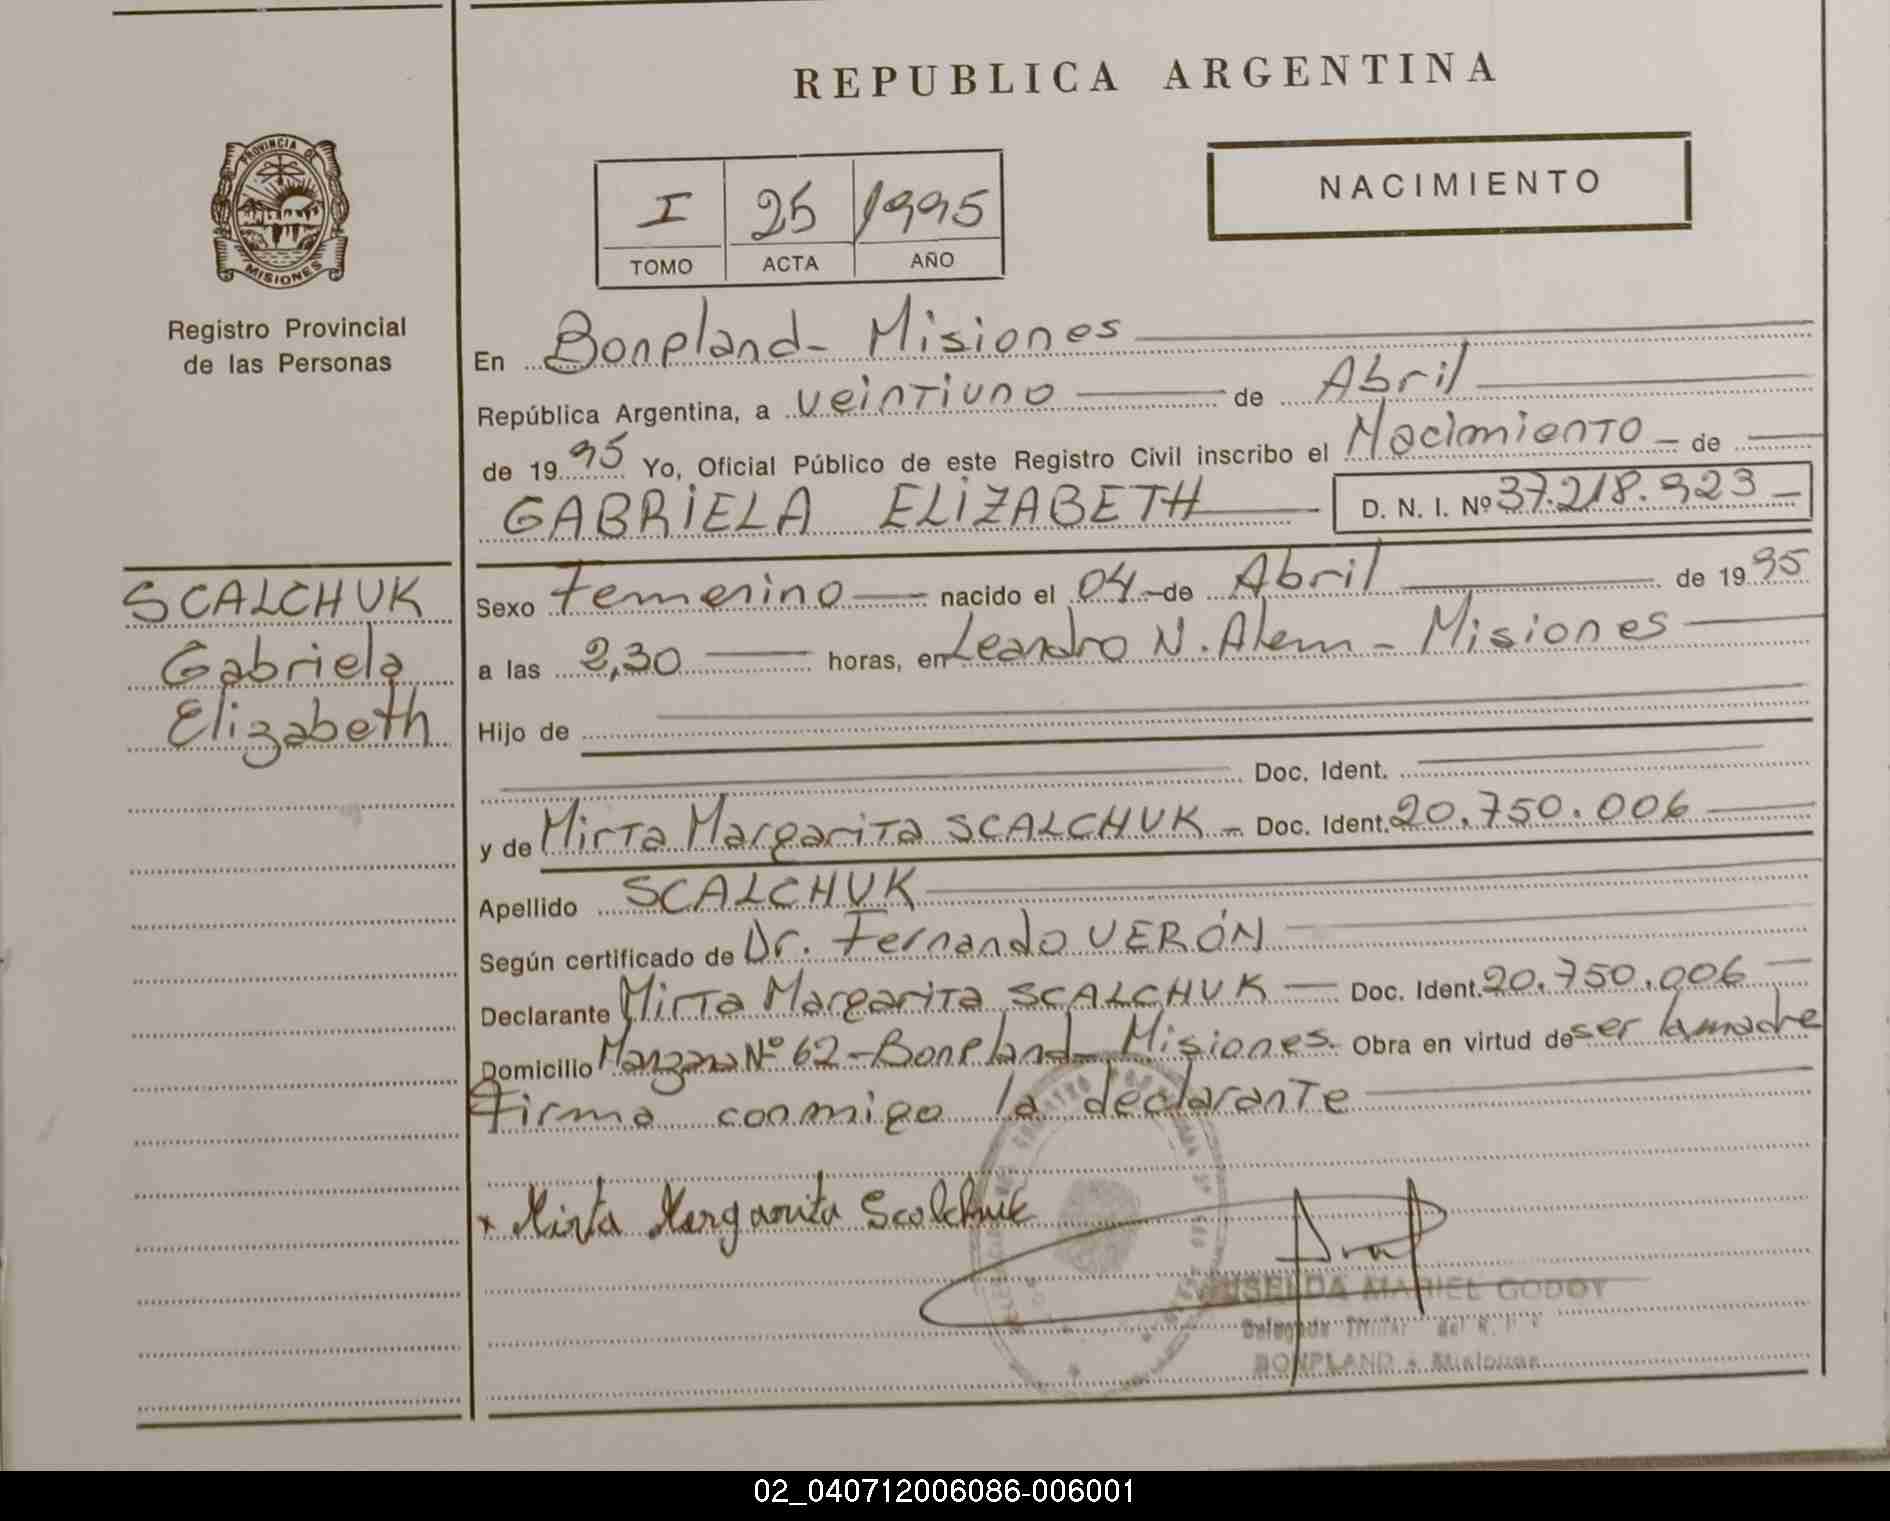 REPUBLICA ARGENTINA
NACIMIENTO
I 25 1995
TOMO ACTA AÑO
PROVINCIA DE
MISIONES
Registro Provincial
de las Personas
En Bonpland - Misiones
República Argentina, a veintiuno de Abril
de 1995 Yo, Oficial Público de este Registro Civil inscribo el Nacimiento de
GABRIELA ELIZABETH D. N. I. Nº 37.218.923
SCALCHUK
Gabriela
Elizabeth
Sexo Femenino nacido el 04 de Abril de 1995
a las 2,30 horas, en Leandro N. Alem - Misiones
Hijo de
Doc. Ident.
y de Mirta Margarita SCALCHUK - Doc. Ident. 20.750.006
Apellido SCALCHUK
Según certificado de Dr. Fernando VERÓN
Declarante Mirta Margarita SCALCHUK Doc. Ident. 20.750.006
Domicilio Manzana Nº 62 - Bonpland - Misiones. Obra en virtud de ser la madre
Firma conmigo la declarante
x Mirta Margarita Scalchuk
MARIEL GODOY
Delegada Titular del R. P. P.
BONPLAND - Misiones
02_040712006086-006001